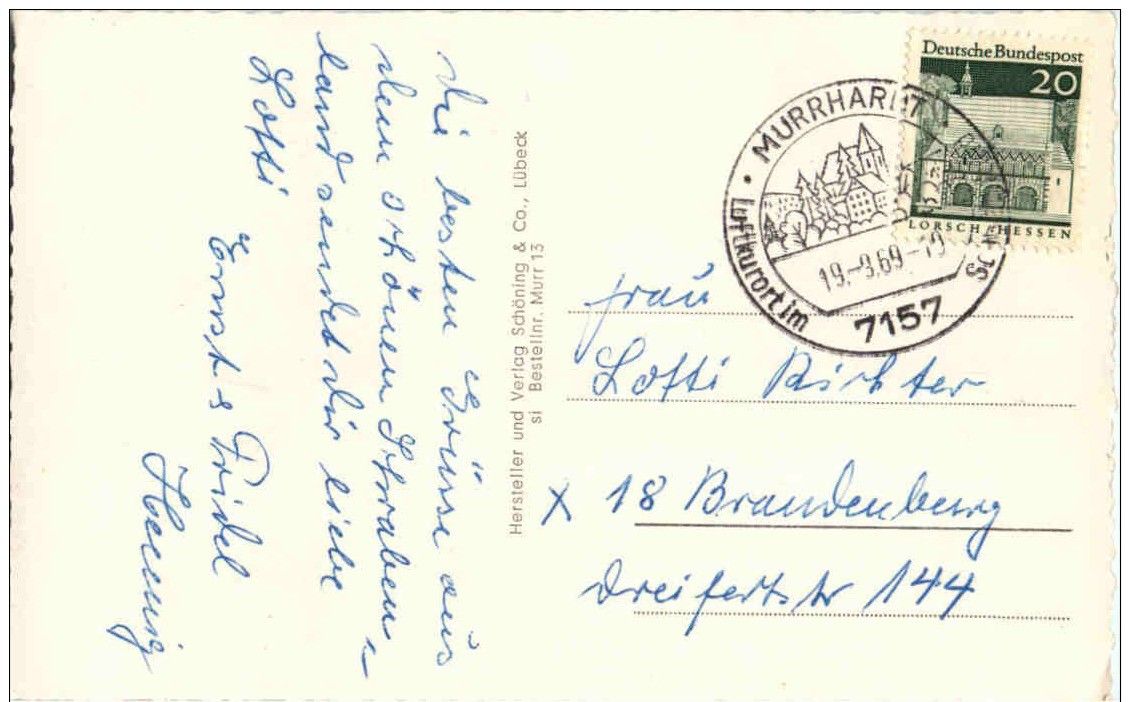 Die besten Grüße aus
dem schönen Schwaben-
land sendet dir liebe
Lotti
Ernst & Fridel
Hennig
Hersteller und Verlag Schöning & Co., Lübeck
si Bestellnr. Murr 13
Deutsche Bundespost
20
LORSCH/HESSEN
MURRHARDT
Luftkurort im
19.-9.69-19
7157
Frau
Lotti Richter
x 18 Brandenburg
Dreifertstr 144